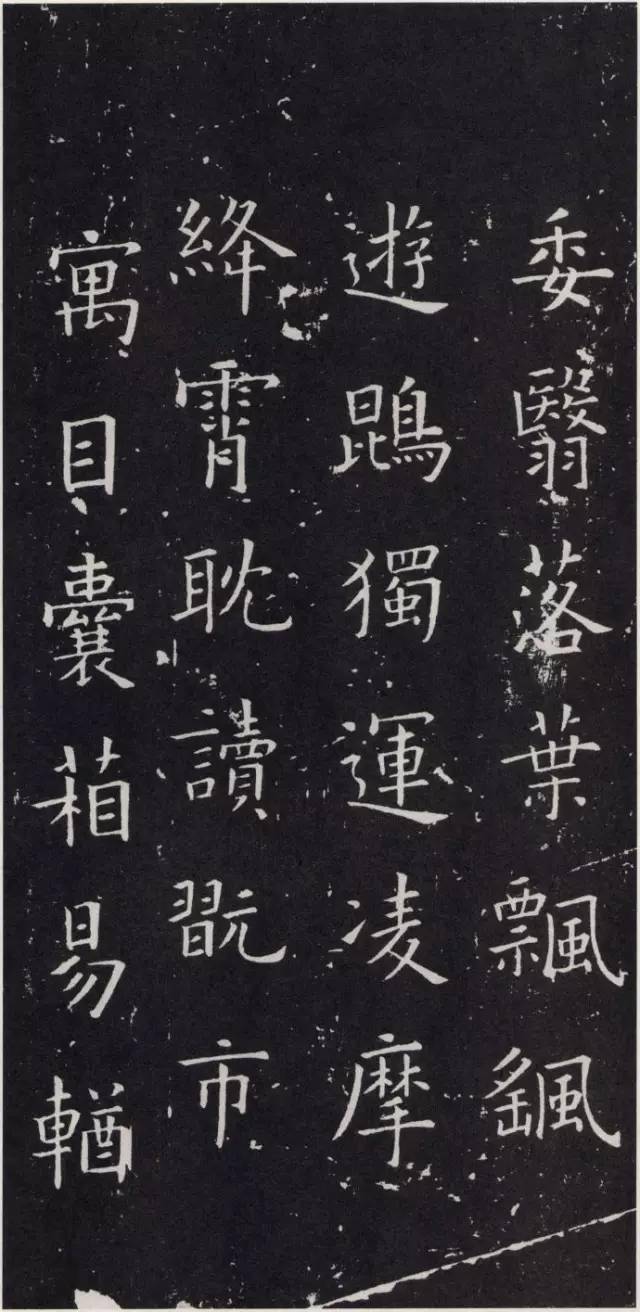 委翳落葉飄颻
遊鵾獨運凌摩
絳霄耽讀翫市
寓目囊葙易輶